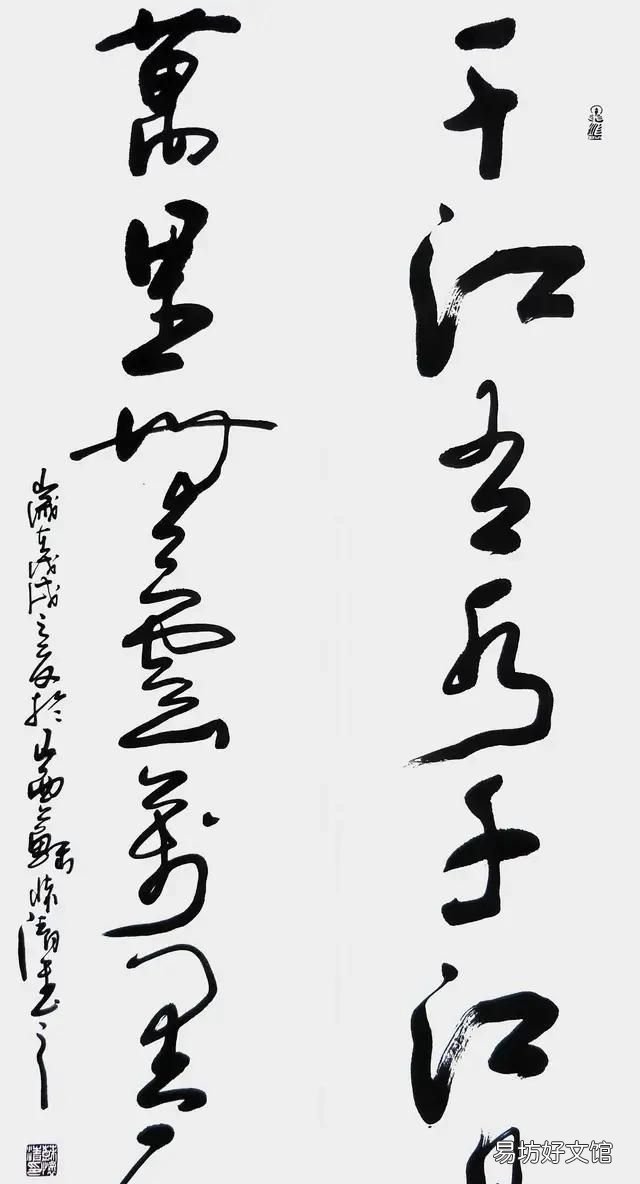 千江有水千江月
萬里無雲萬里
歲在戊戌之夏於山西
懷清書
易坊好文馆